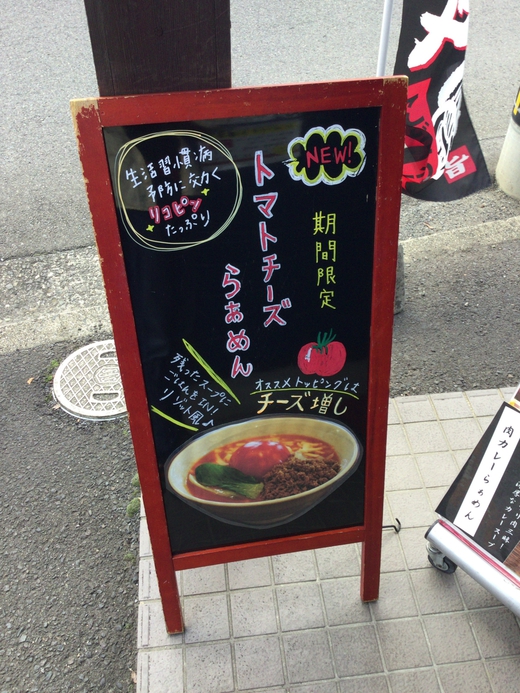 生活習慣病
予防に効く
リコピン
たっぷり
NEW!
期間限定
トマトチーズ
らぁめん
残ったスープに
ごはんをIN!
リゾット風♪
オススメトッピングは
チーズ増し
肉カレーらぁめん
旨